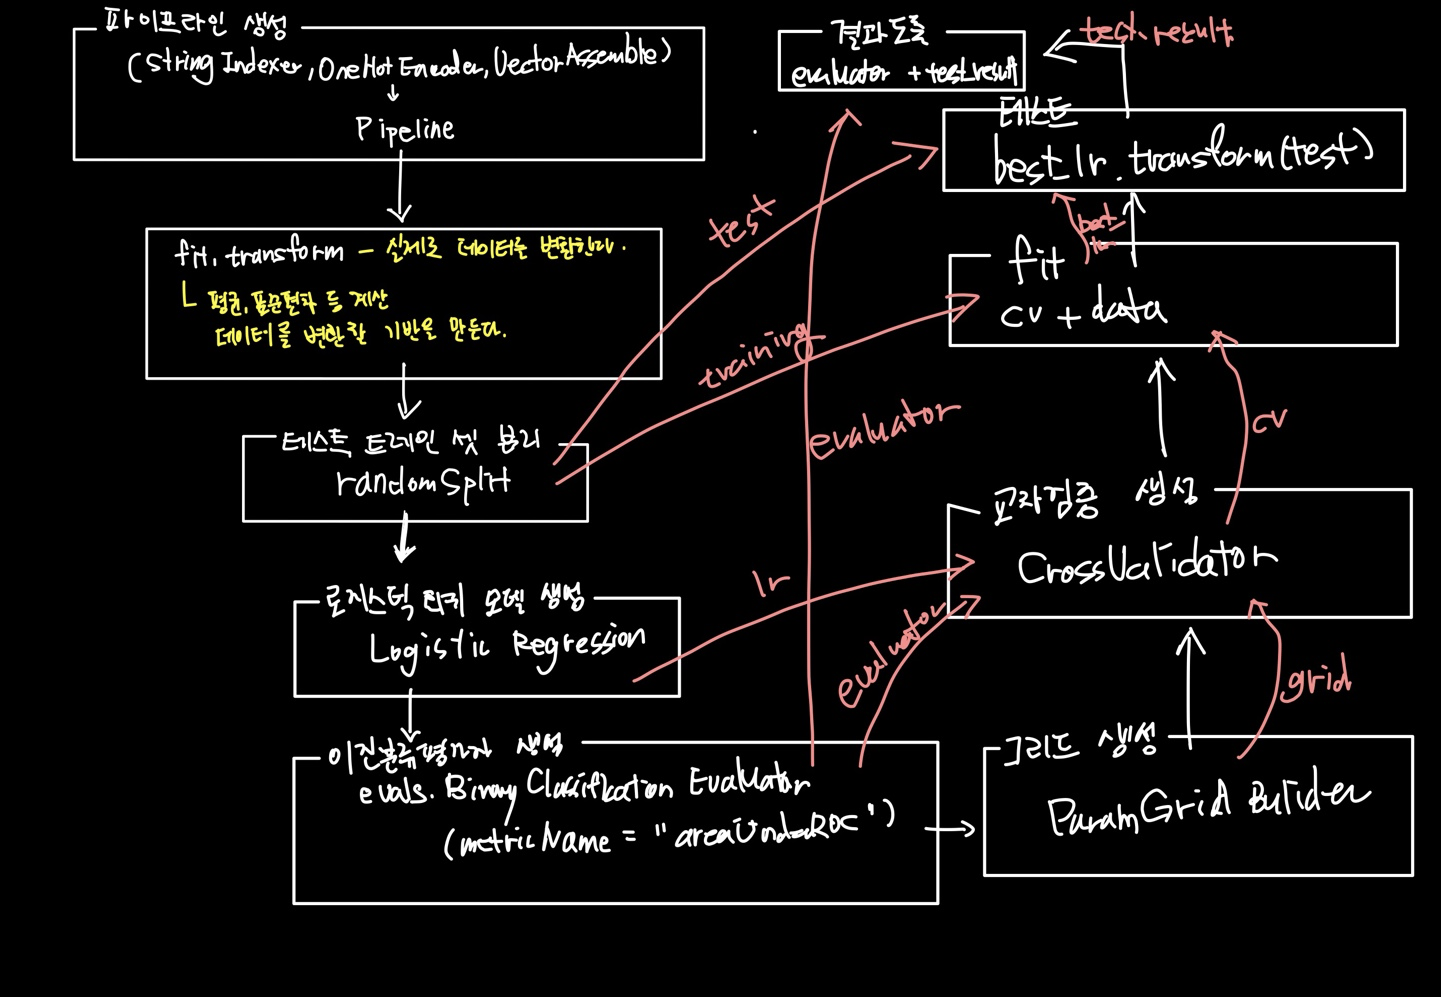 파이프라인 생성
(String Indexer, OneHot Encoder, Vector Assemble)
Pipeline
fit, transform - 실제로 데이터를 변환한다.
ㄴ 평균, 표준편차 등 계산
데이터를 변환할 기반을 만든다.
테스트 트레인 셋 분리
randomSplit
로지스틱 회귀 모델 생성
Logistic Regression
이진분류평가자 생성
evals. Binary Classification Evaluator
(metricName = "areaUnderROC")
그리드 생성
ParamGrid Builder
grid
교차검증 생성
CrossValidator
lr
evaluator
cv
fit
cv + data
training
best_lr
테스트
best_lr. transform(test)
test
test_result
결과도출
evaluator + test_result
evaluator